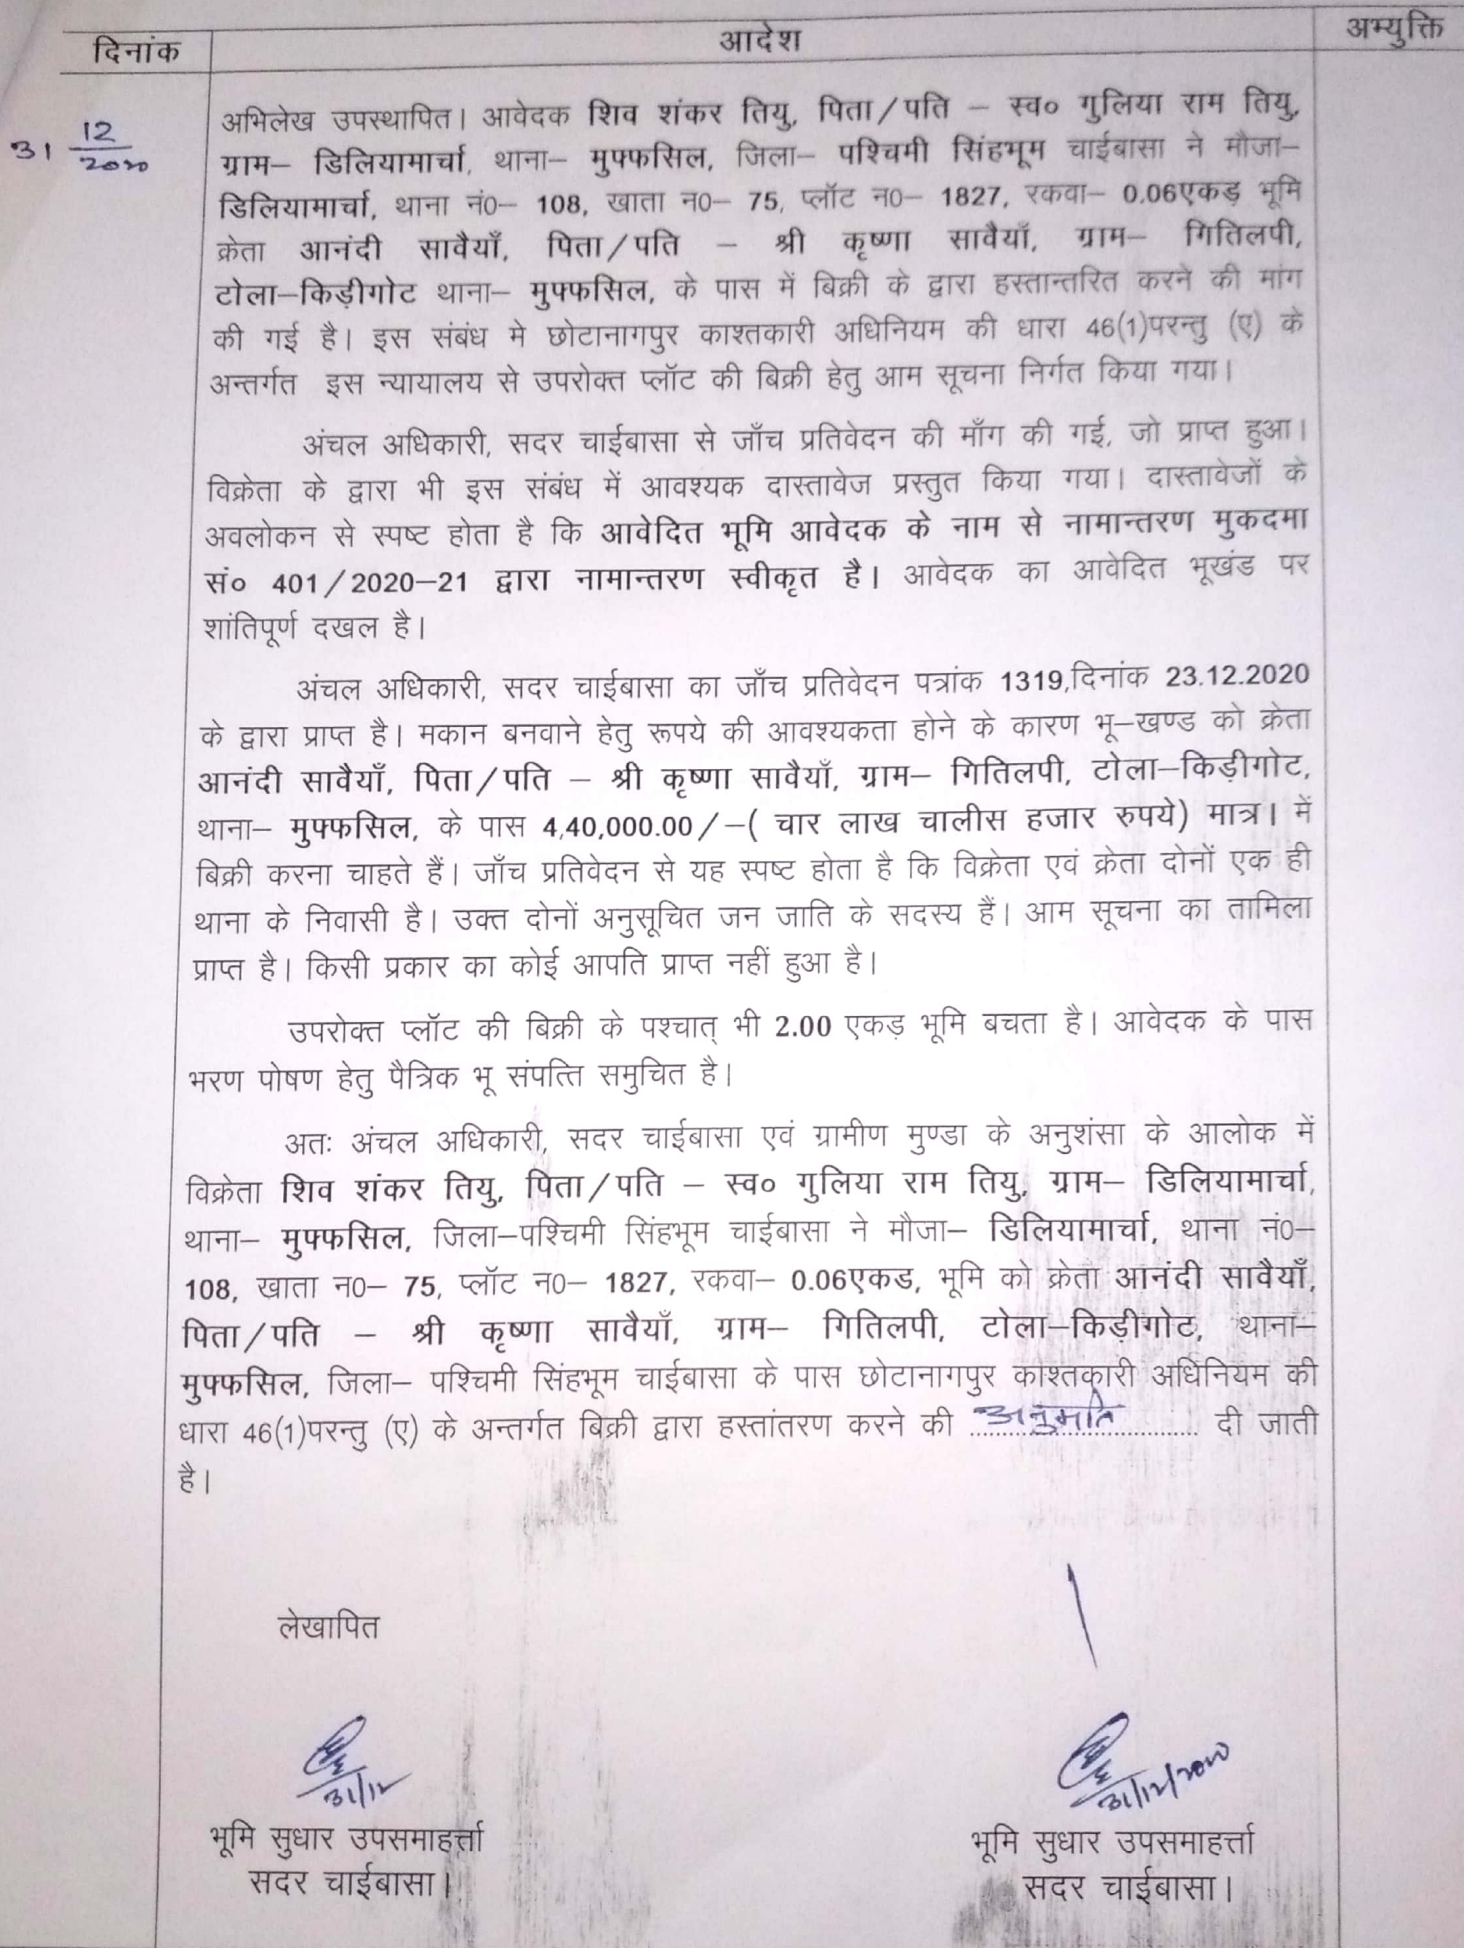 दिनांक आदेश अभ्युक्ति
31 12/2020
अभिलेख उपस्थापित। आवेदक शिव शंकर तियु, पिता/पति – स्व० गुलिया राम तियु,
ग्राम– डिलियामार्चा, थाना– मुफ्फसिल, जिला– पश्चिमी सिंहभूम चाईबासा ने मौजा–
डिलियामार्चा, थाना नं0– 108, खाता न0– 75, प्लॉट न0– 1827, रकवा– 0.06एकड़ भूमि
क्रेता आनंदी सावैयाँ, पिता/पति – श्री कृष्णा सावैयाँ, ग्राम– गितिलपी,
टोला–किड़ीगोट थाना– मुफ्फसिल, के पास में बिक्री के द्वारा हस्तान्तरित करने की मांग
की गई है। इस संबंध मे छोटानागपुर काश्तकारी अधिनियम की धारा 46(1)परन्तु (ए) के
अन्तर्गत इस न्यायालय से उपरोक्त प्लॉट की बिक्री हेतु आम सूचना निर्गत किया गया।
अंचल अधिकारी, सदर चाईबासा से जाँच प्रतिवेदन की माँग की गई, जो प्राप्त हुआ।
विक्रेता के द्वारा भी इस संबंध में आवश्यक दास्तावेज प्रस्तुत किया गया। दास्तावेजों के
अवलोकन से स्पष्ट होता है कि आवेदित भूमि आवेदक के नाम से नामान्तरण मुकदमा
सं० 401/2020–21 द्वारा नामान्तरण स्वीकृत है। आवेदक का आवेदित भूखंड पर
शांतिपूर्ण दखल है।
अंचल अधिकारी, सदर चाईबासा का जाँच प्रतिवेदन पत्रांक 1319,दिनांक 23.12.2020
के द्वारा प्राप्त है। मकान बनवाने हेतु रूपये की आवश्यकता होने के कारण भू–खण्ड को क्रेता
आनंदी सावैयाँ, पिता/पति – श्री कृष्णा सावैयाँ, ग्राम– गितिलपी, टोला–किड़ीगोट,
थाना– मुफ्फसिल, के पास 4,40,000.00/–( चार लाख चालीस हजार रुपये) मात्र। में
बिक्री करना चाहते हैं। जाँच प्रतिवेदन से यह स्पष्ट होता है कि विक्रेता एवं क्रेता दोनों एक ही
थाना के निवासी है। उक्त दोनों अनुसूचित जन जाति के सदस्य हैं। आम सूचना का तामिला
प्राप्त है। किसी प्रकार का कोई आपति प्राप्त नहीं हुआ है।
उपरोक्त प्लॉट की बिक्री के पश्चात् भी 2.00 एकड़ भूमि बचता है। आवेदक के पास
भरण पोषण हेतु पैत्रिक भू संपत्ति समुचित है।
अतः अंचल अधिकारी, सदर चाईबासा एवं ग्रामीण मुण्डा के अनुशंसा के आलोक में
विक्रेता शिव शंकर तियु, पिता/पति – स्व० गुलिया राम तियु, ग्राम– डिलियामार्चा,
थाना– मुफ्फसिल, जिला–पश्चिमी सिंहभूम चाईबासा ने मौजा– डिलियामार्चा, थाना नं0–
108, खाता न0– 75, प्लॉट न0– 1827, रकवा– 0.06एकड, भूमि को क्रेता आनंदी सावैयाँ,
पिता/पति – श्री कृष्णा सावैयाँ, ग्राम– गितिलपी, टोला–किड़ीगोट, थाना–
मुफ्फसिल, जिला– पश्चिमी सिंहभूम चाईबासा के पास छोटानागपुर काश्तकारी अधिनियम की
धारा 46(1)परन्तु (ए) के अन्तर्गत बिक्री द्वारा हस्तांतरण करने की अनुमति दी जाती
है।
लेखापित
31/12 31/12/2020
भूमि सुधार उपसमाहर्त्ता भूमि सुधार उपसमाहर्त्ता
सदर चाईबासा। सदर चाईबासा।